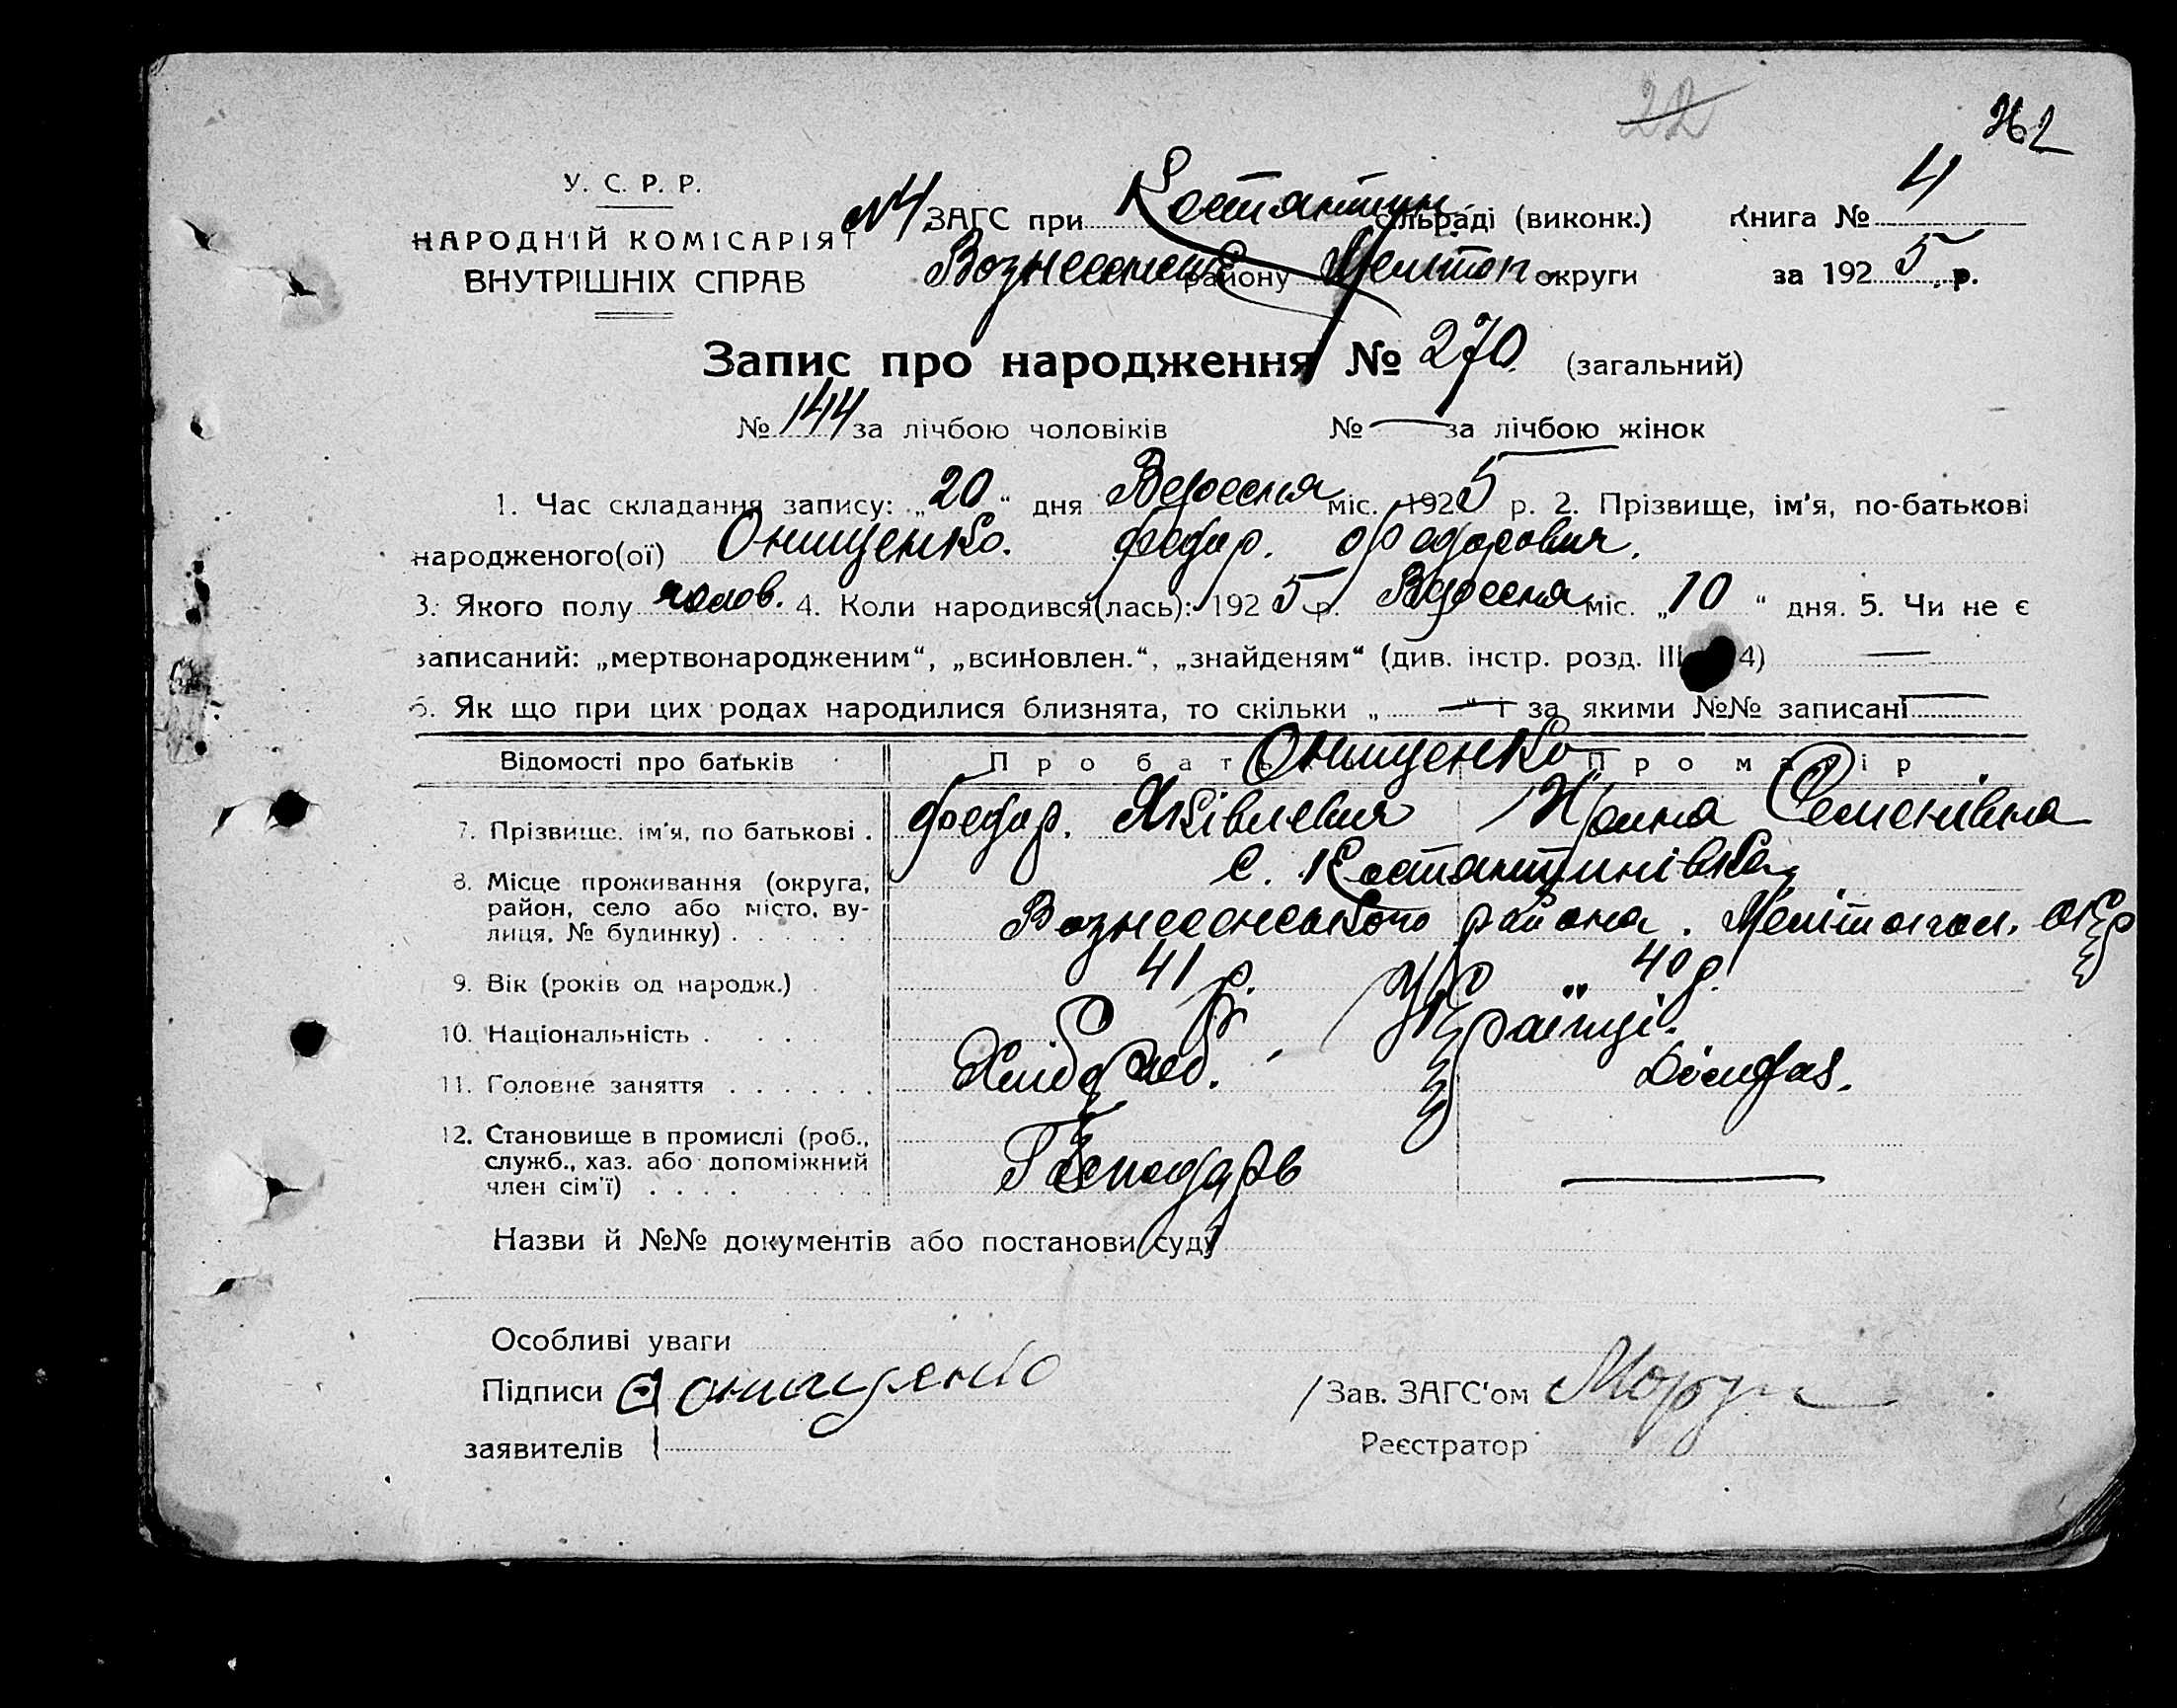 22
У. С. Р. Р.
НАРОДНІЙ КОМІСАРІЯТ
ВНУТРІШНІХ СПРАВ
№4 ЗАГС при Костянтин. сільраді (виконк.) Книга № 4
Вознесенськ району Мелітоп. округи за 1925 р.
Запис про народження № 270. (загальний)
№ 144 за лічбою чоловіків № — за лічбою жінок
1. Час складання запису: „20“ дня Вересня міс. 1925 р. 2. Прізвище, ім'я, по-батькові
народженого(ої) Онищенко. Федір. Федорович.
3. Якого полу чолов. 4. Коли народився(лась): 1925 р. Вересня міс. „10“ дня. 5. Чи не є
записаний: „мертвонародженим“, „всиновлен.“, „знайденям“ (див. інстр. розд. III 4) —
6. Як що при цих родах народилися близнята, то скільки „—“ і за якими №№ записані —
Відомості про батьків Про бать Онищенко Про матір
7. Прізвище. ім'я, по батькові . Федір. Яківлевич Ирина Семенівна
8. Місце проживання (округа, район, село або місто, вулиця, № будинку) . . . . . с. Костянтинівка
Вознесенського района. Мелітопол. окр
9. Вік (років од народж.) . 41 р. 40 р.
10. Національність . . . . Українці.
11. Головне заняття . . . . . . Хлібороб. Домгос.
12. Становище в промислі (роб., служб., хаз. або допоміжний член сім'ї) . . . . Господарь —
Назви й №№ документів або постанови суду
Особливі уваги
Підписи Онищенко Зав. ЗАГС'ом
заявителів Реєстратор